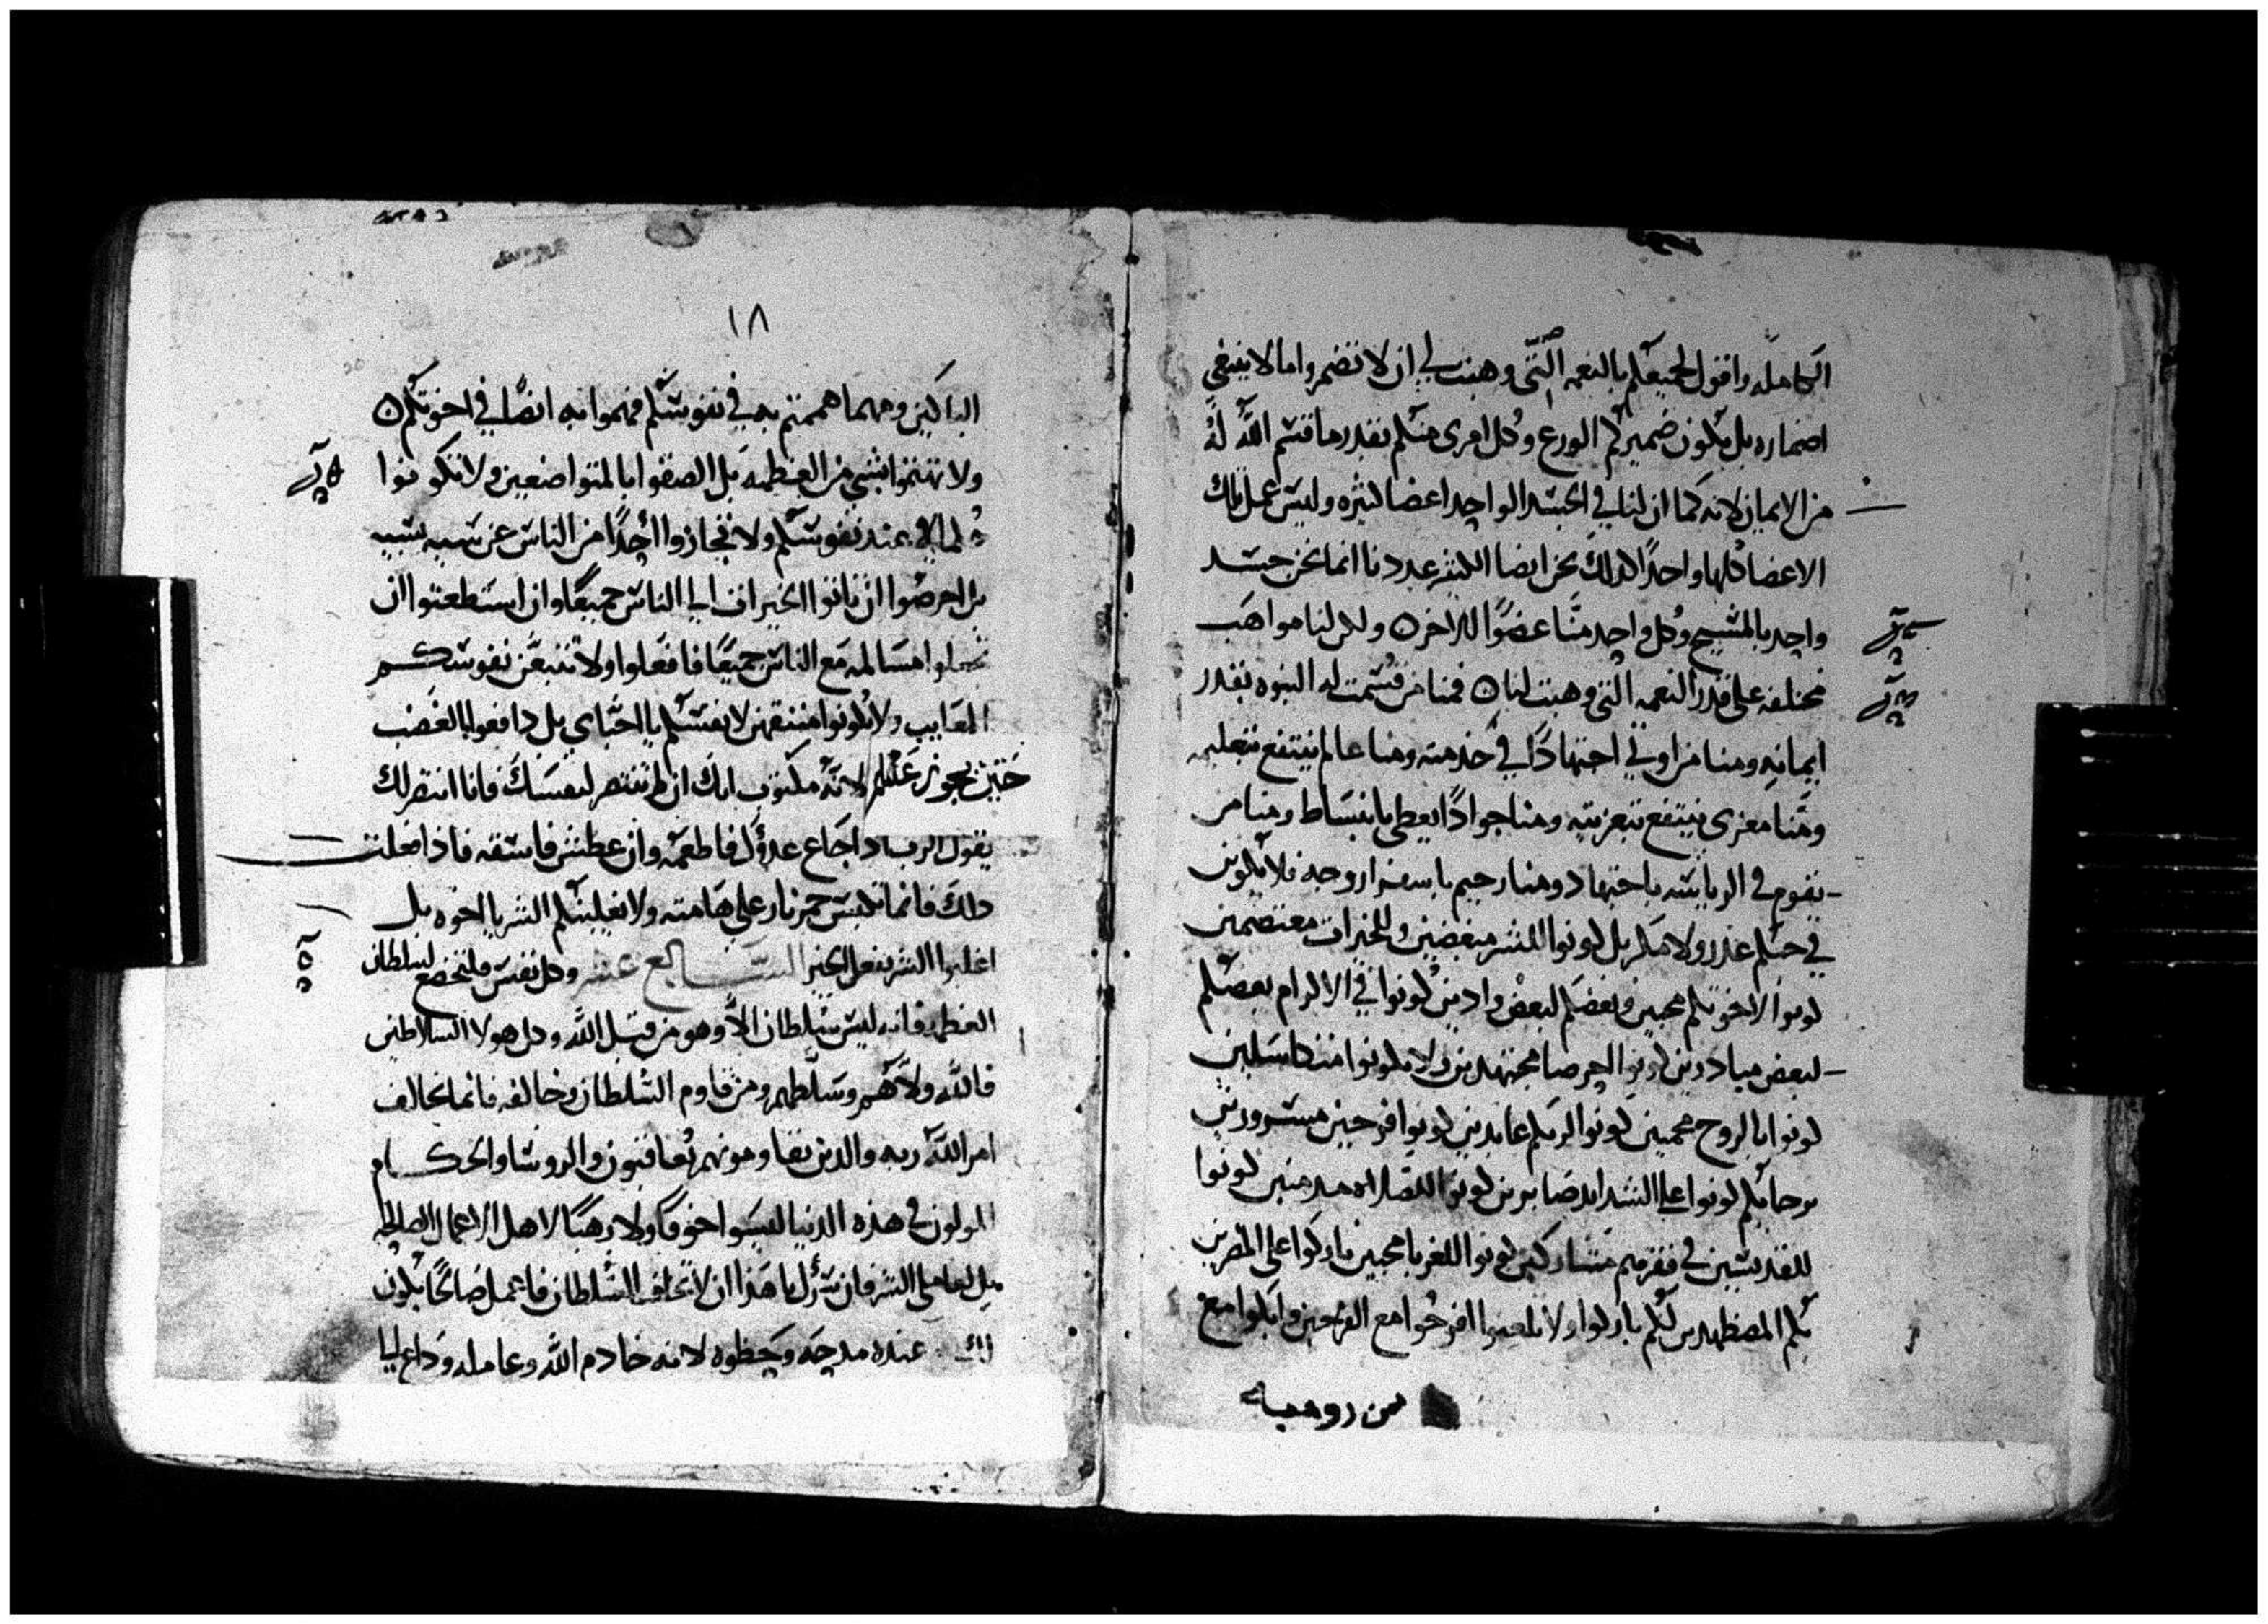 الكامله واقول لجميعكم بالنعمه التى وهبت لي ان لا تضمروا مالا ينبغي
اضماره بل يكون ضميركم الورع وكل امرى منكم بقدر ما قسم الله له
من الايمان لانه كما ان لنا في الجسد الواحد اعضا كثيره وليس عمل تلك
الاعضا كلها واحدًا كذلك نحن ايضا الكثير عددنا انما نحن جسد
واحد بالمسيح وكل واحد منّا عضوًا للاخر ولكن لنا مواهب
مختلفه على قدر النعمه التي وهبت لنا فمنا من قسمت له النبوه بقدر
ايمانه ومنا من اوتي اجتهادًا في خدمته ومنا عالم ينتفع بتعليمه
ومنّا معزى ينتفع بتعزيته ومنا جوادًا يعطي بانبساط ومنا من
يقوم في الرياسه باجتهاد ومنا رحيم باسفرار وجه فلا يكونن
في حبكم غدر ولا مكر بل كونوا للشر مبغضين وللخيرات معتصمين
كونوا لاخوتكم محبين وبعضكم لبعض وادين كونوا في الاكرام بعضكم
لبعض مبادرين كونوا حرصا مجتهدين ولا تكونوا متكاسلين
كونوا بالروح محميين كونوا لربكم عابدين كونوا فرحين مسرورين
برجائكم كونوا على الشدايد صابرين كونوا للصلاه مدمنين كونوا
للقديسين في فقرهم مشاركين كونوا للغربا محبين باركوا على المطردين
لكم المضطهدين لكم باركوا ولا تلعنوا افرحوا مع الفرحين وابكوا مع
من روميه
١٨
الباكين ومهما هممتم به في نفوسكم فهموا به ايضًا في اخوتكم
ولا تهتموا بشي من العظمه بل الصقوا بالمتواضعين ولا تكونوا
حكما عند نفوسكم ولا تجازوا احدًا من الناس عن سيه بسيه
بل احرصوا ان تاتوا الخيرات الي الناس جميعًا وان استطعتوا ان
تعملوا مسالمه مع الناس جميعًا فافعلوا ولا تتبعن نفوسكم
المعايب ولا تكونوا منتقمين لانفسكم يا احباي بل دافعوا بالغضب
حتين يجوز عنكم لانه مكتوب انك ان لم تنتصر لنفسك فانا انتصر لك
يقول الرب اذا جاع عدوك فاطعمه وان عطش فاسقه فاذا فعلت
ذلك فانما تكبس جمر نار على هامته ولا يغلبنكم الشر يا اخوه بل
اغلبوا الشر بفعل الخير السابع عشر وكل نفس فلتخضع لسلطان
العظمه فانه ليس سلطان الا وهو من قبل الله وكل هولا السلاطين
فالله ولاهم وسلطهم ومن قاوم السلطان وخالفه فانما يخالف
امر الله ربه والذين يقاومونهم يعاقبون والروسا والحكام
المولون في هذه الدنيا ليسوا خوفًا ولا رهبًا لاهل الاعمال الصالحه
بل لعاملي الشر فان سرّك يا هذا ان لا تخاف السلطان فاعمل صالحًا يكون
لك عنده مدحه وحظوه لانه خادم الله وعامله وداع ليا